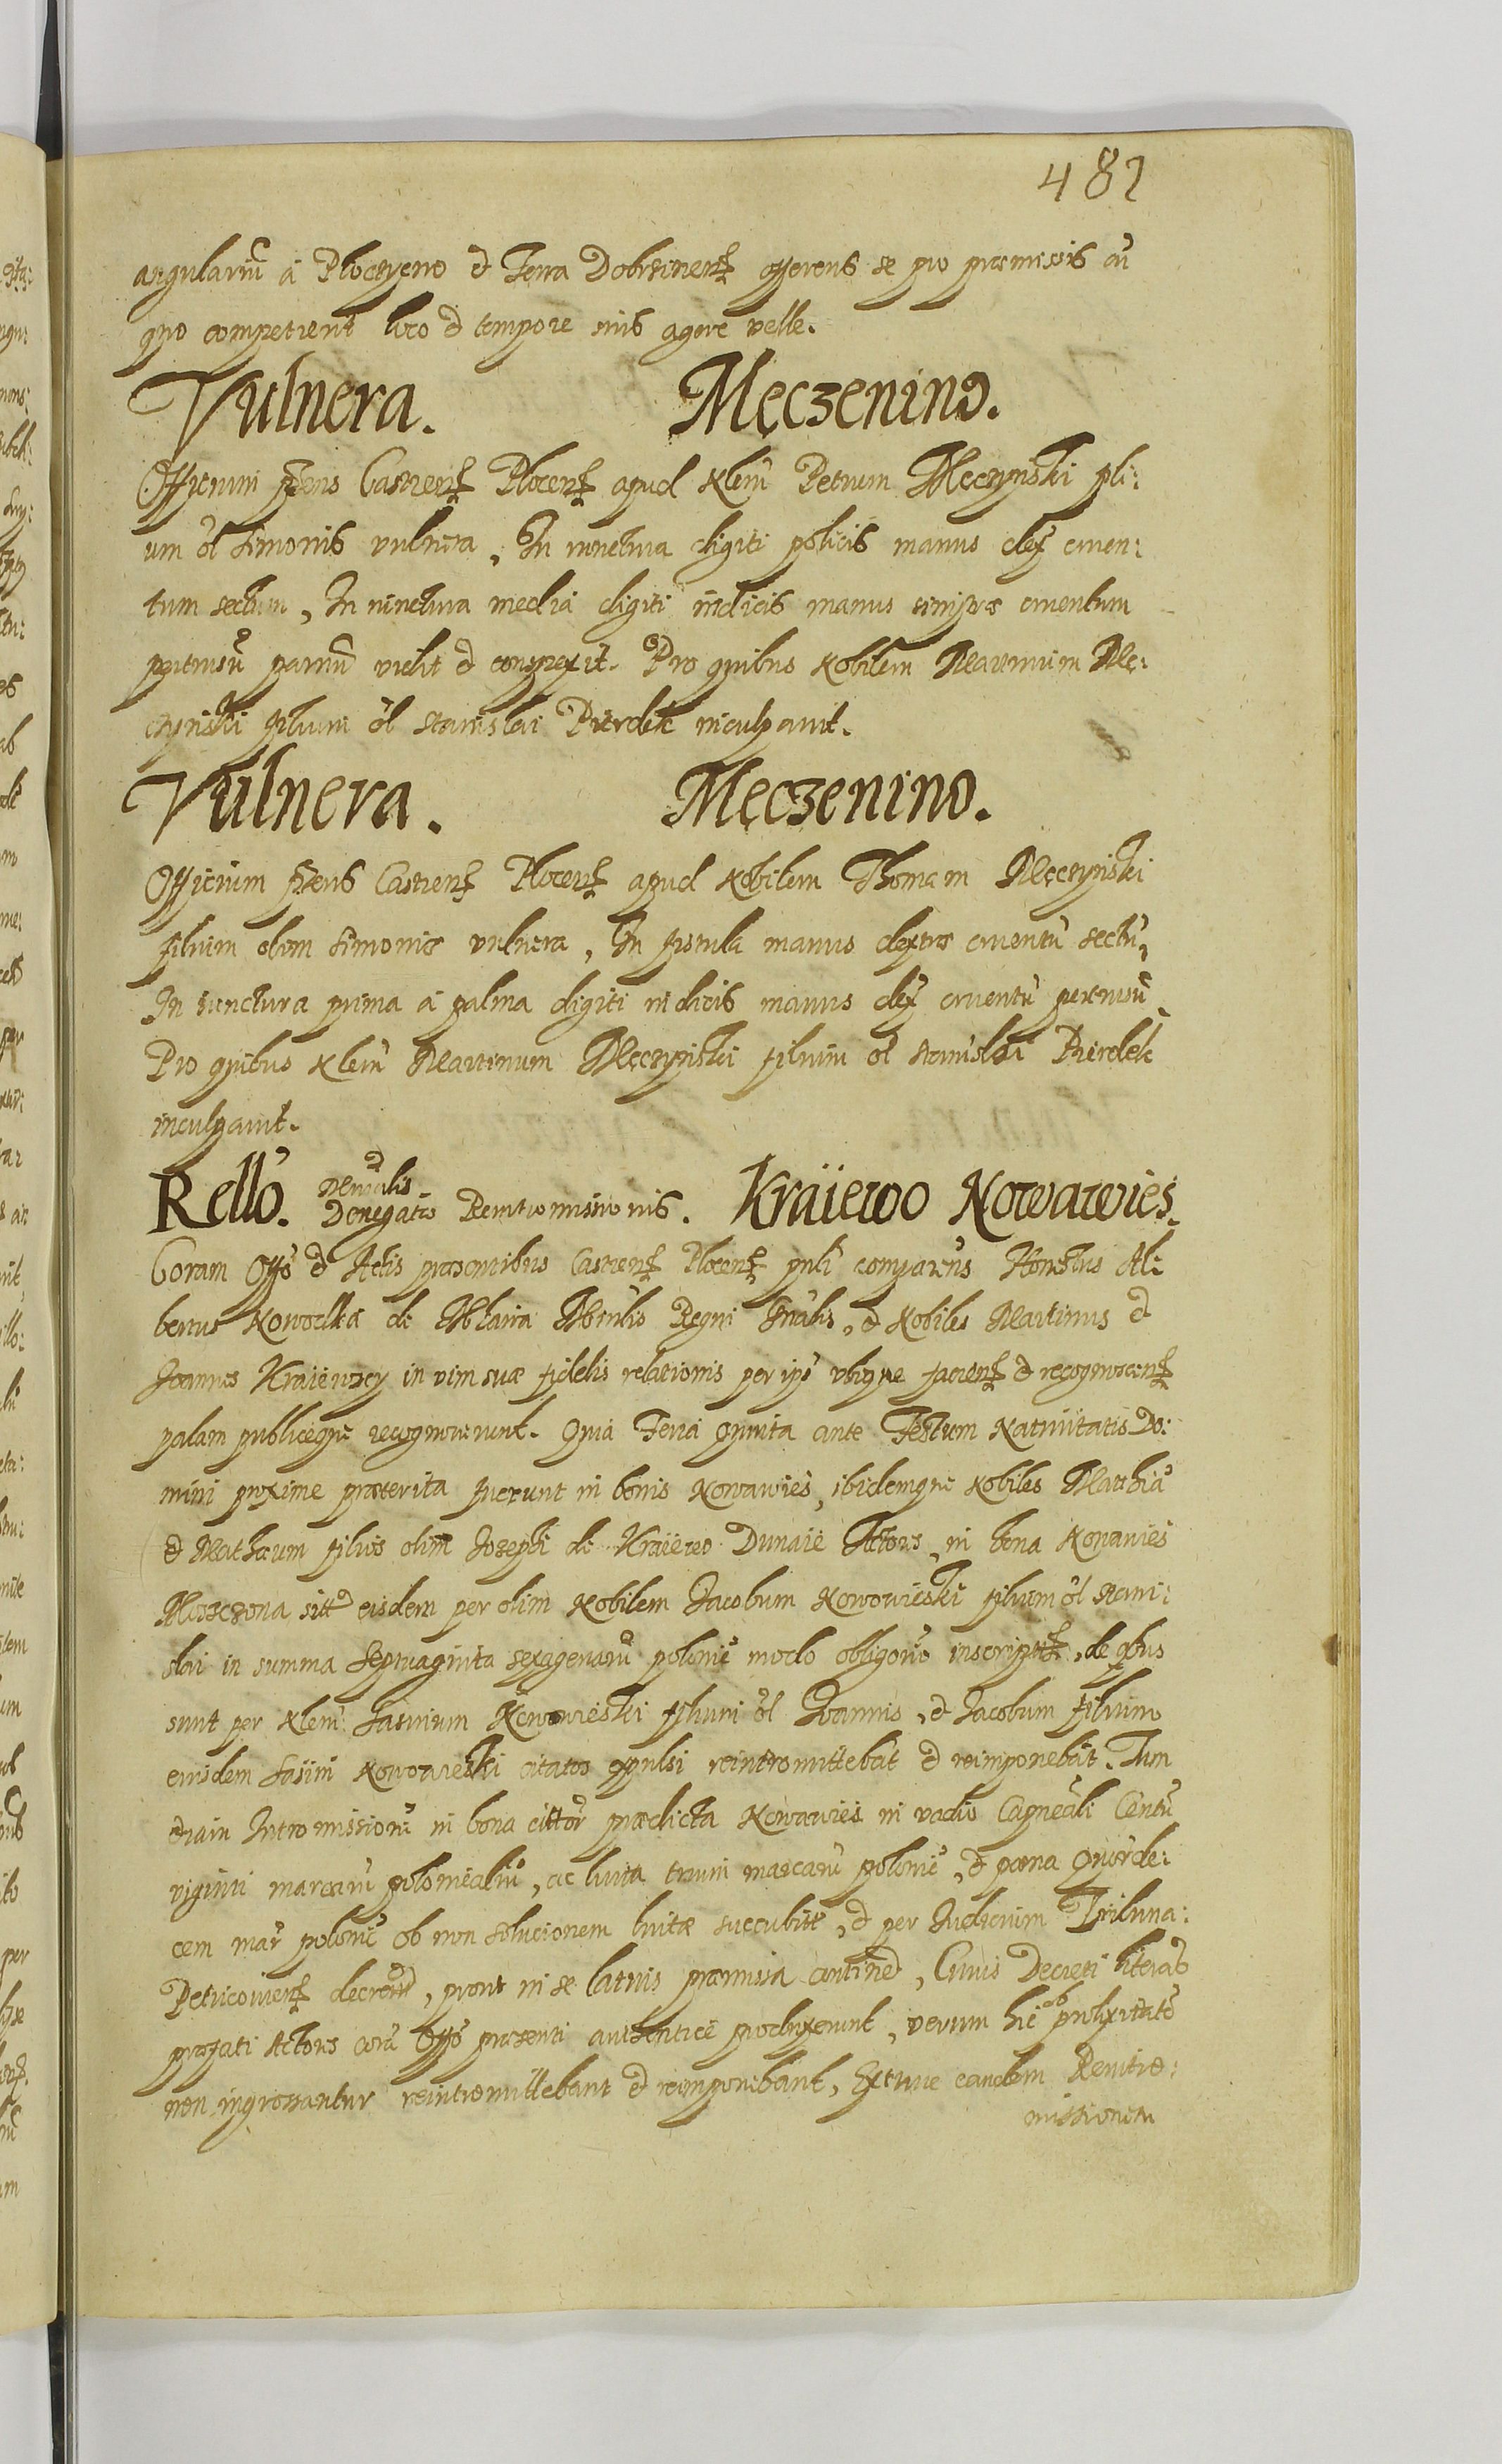 481
angulariū á Płoczyeno et Terra Dobrzinens̃ offerens se pro præmissis cū
quo competierit loco et tempore iuris agere velle.
Vulnera. Męczenino.
Officium p̃ens Castrens̃ Plocens̃ apud Nlem̃ Petrum Męczyński fili:
um ol̃ Simonis vulnera, In iunctura digiti policis manus dex̃ cruen:
tum sectum, In iunctura media digiti indicis manus sinistræ cruentum
percusū parvū vidit et conspexit. Pro quibus Nobilem Martinum Mę:
czyński filium ol̃ Stanislai Pierdek inculpavit.
Vulnera. Męczenino.
Officium p̃ens Castrens̃ Plocens̃ apud Nobilem Thomam Męczyński
filium olim Simonis vulnera, In fistula manus dextræ cruentū sectū,
In iunctura prima á palma digiti indicis manus dex̃ cruentū percusū
Pro quibus Nlem̃ Martinum Męczyński filium ol̃ Stanislai Pierdek
inculpavit.
Rello. et Denegatio Reintromissionis. Kraiewo Nowawies.
Coram Offo et Actis præsentibus Castrens̃ Plocens̃ p̃nli comparens Honestus Al:
bertus Nowodka de Mława Mrilis Regni Gnalis, et Nobiles Martinus et
Joannes Kraiewscy in vim suæ fidelis relationis per ip̃os ubique faciens̃ et recognoscens̃
palam publiceque recognoverunt. Quia Feria Quinta ante Festum Nativitatis Do:
mini proxime præterita fuerunt in bonis Nowawies, ibidemque Nobiles Mathiā
et Mathæum filios olim Josephi de Kraiewo Dunaie Actores, in bona Nowawies
sitt eisdem per olim Nobilem Jacobum Nowowieski filium ol̃ Stani:
slai in summa Septuaginta sexagenarū polonic̃ modo obligōrio inscripta, de qbus
sunt per Nlem̃ Nowowieski filium ol̃ Joannis, et Jacobum filium
eiusdem Nowowieski citatos expulsi reintromittebāt et reimponebāt. Tum
etiam Intromissionē in bona præedicta Nowawies in vadio Centū
viginti marcarū polonicaliū, ac luita trium marcarū polonic̃, et pæna Quārde:
cem mar̃ polonic̃ ob non solucionem luitæ succubitæ, et per Iudicium Tribuna:
Petricoviens̃, prout in se latius præmissa continet, Cuius Decreti literas
præfati Actores corā Offo præsenti authentice produxerunt, verum hic ob prolixitatē
non ingrossantur reintromittebant et reimponebant, Extunc eandem Reintro:
missionem